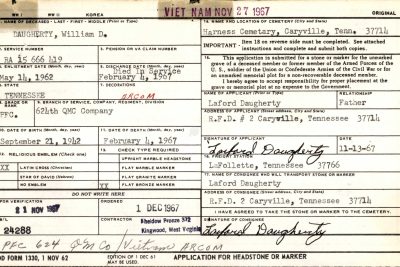 WW I WW II KOREA VIET NAM NOV 27 1967
1. NAME OF DECEASED - LAST - FIRST - MIDDLE (Print or Type)
DAUGHERTY, William D.
14. NAME AND LOCATION OF CEMETERY (City and State)
Harness Cemetery, Caryville, Tenn. 37714
IMPORTANT - Item 18 on reverse side must be completed. See attached instructions and complete and submit both copies.
SERVICE NUMBER
RA 15 666 419
3. PENSION OR VA CLAIM NUMBER
This application is submitted for a stone or marker for the unmarked grave of a deceased member or former member of the Armed Forces of the U.S., soldier of the Union or Confederate Armies of the Civil War or for an unmarked memorial plot for a non-recoverable deceased member.
I hereby agree to accept responsibility for proper placement at the grave or memorial plot at no expense to the Government.
ENLISTMENT DATE (Month, day, year)
May 14, 1962
Died In Service
February 4, 1967
STATE
TENNESSEE
7. DECORATIONS
ARCOM
NAME OF APPLICANT (Print or Type)
Laford Daugherty
RELATIONSHIP
Father
BRANCH OF SERVICE, COMPANY, REGIMENT, DIVISION
PFC.
624th QMC Company
R.F.D. # 2 Caryville, Tennessee 37714
SIGNATURE OF APPLICANT
DATE
Laford Daugherty
11-13-67
September 21, 1942
11. DATE OF DEATH (Month, day, year)
February 4, 1967
RELIGIOUS EMBLEM (Check one)
CHECK TYPE REQUIRED
UPRIGHT MARBLE HEADSTONE
XX LATIN CROSS (Christian)
FLAT MARBLE MARKER
STAR OF DAVID (Hebrew)
FLAT GRANITE MARKER
NO EMBLEM
XX FLAT BRONZE MARKER
FREIGHT STATION
LaFollette, Tennessee 37766
NAME OF CONSIGNEE WHO WILL TRANSPORT STONE OR MARKER
Laford Daugherty
DO NOT WRITE HERE
R.F.D. 2 Caryville, Tennessee 37714
21 NOV 1967
ORDERED
1 DEC 1967
I HAVE AGREED TO TAKE THE STONE OR MARKER TO THE CEMETERY.
24288
Sheidow Bronze
Kingwood, West Virginia
SIGNATURE OF CONSIGNEE
Laford Daugherty
PFC 624 QM Co / Vietnam ARCOM
FORM 1330, 1 NOV 62
EDITION OF 1 DEC 61 MAY BE USED.
APPLICATION FOR HEADSTONE OR MARKER